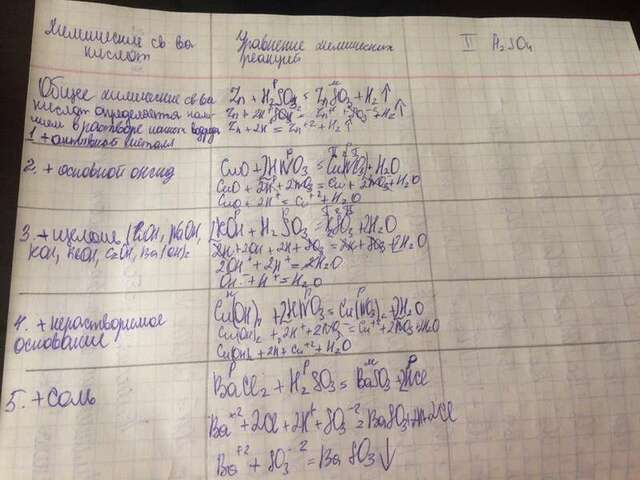 Химические св ва кислот
Уравнение химических реакций
II H2SO4
Общее химические св ва кислот определяется
в растворе
1 + активной металл
Zn + H2SO4 = ZnSO2 + H2↑
Zn + 2H = Zn+2 + H2↑
2. + основной оксид
CuO + 2HNO3 = Cu(NO3)2 + H2O
CuO + 2H + 2NO3 = Cu + 2NO3 + H2O
CuO + 2H+ = Cu+2 + H2O
3. + щелочь (LiOH, NaOH, KOH, RbOH, CsOH, Ba(OH)2
2KOH + H2SO4 = K2SO4 + 2H2O
2K + 2OH + 2H + SO4 = 2K + SO4 + 2H2O
2OH + 2H+ = 2H2O
OH + H+ = H2O
4. + нерастворимое основание
Cu(OH)2 + 2HNO3 = Cu(NO3)2 + 2H2O
Cu(OH)2 + 2H+ + 2NO3 = Cu+2 + 2NO3 + H2O
Cu(OH)2 + 2H = Cu+2 + H2O
5. + соль
BaCl2 + H2SO3 = BaSO3 + 2HCl
Ba+2 + 2Cl + 2H+ + SO3-2 = BaSO3 + 2H + 2Cl
Ba+2 + SO3-2 = BaSO3↓